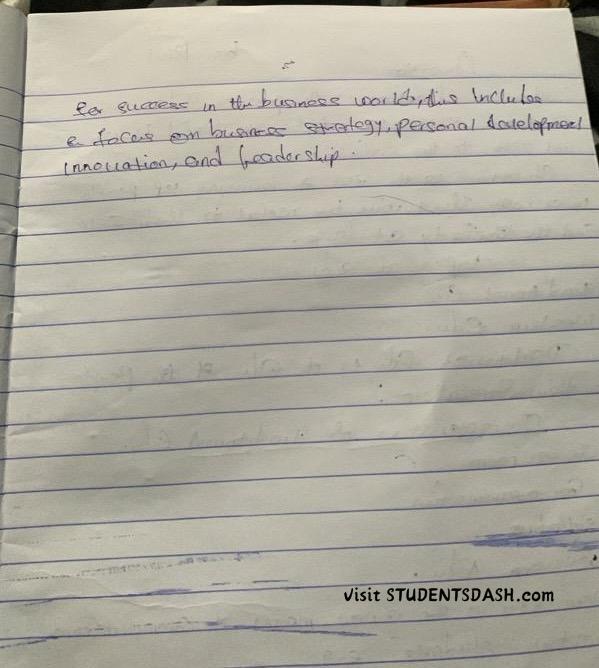 for success in the business world, this includes
a focus on business strategy, personal development
innovation, and leadership.
Visit STUDENTSDASH.com